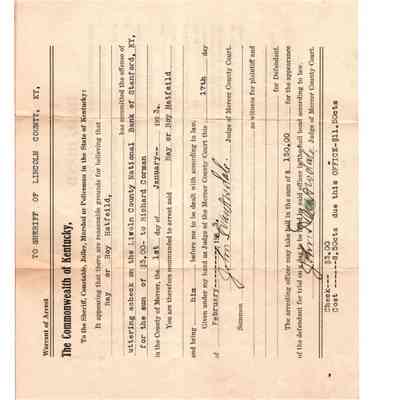 TO SHERIFF OF LINCOLN COUNTY, KY,
Warrant of Arrest
The Commonwealth of Kentucky,
To the Sheriff, Constable, Jailer, Marshal or Policeman in the State of Kentucky:
It appearing that there are reasonable grounds for believing that
Ray or Roy Hatfeild,
has committed the offense of
uttering acheck on the Linoln County National Bank of Stanford, KY,
for the sum of $3,00- to Richard Corman
in the County of Mercer, the 1st day of January-- 193
You are therefore commanded to arrest said Ray or Roy Hatfeild
and bring him before me to be dealt with according to law.
Given under my hand as Judge of the Mercer County Court this 17th day
of February 193
Judge of Mercer County Court.
Summon
as witness for plaintiff and
for Defendant.
The arresting officer may take bail in the sum of $ 150,00 for the appearance
of the defendant for trial on a day to be fixed by said officer in the bail bond according to law.
Judge of Mercer County Court.
Check--- $3,00
Cost -----8,50cts due this OFFICE-$11,50cts